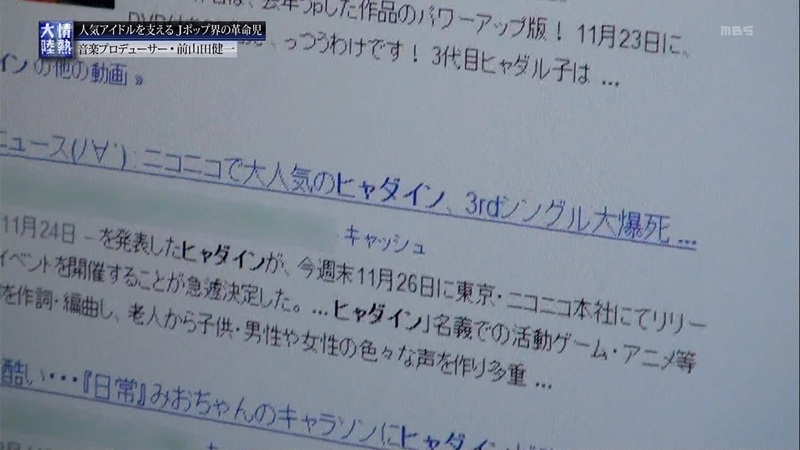 情熱大陸
人気アイドルを支えるJポップ界の革命児
音楽プロデューサー・前山田健一
MBS
した作品のパワーアップ版！ 11月23日に、
つうわけです！ 3代目ヒャダル子は ...
インの他の動画 »
ニュース(ﾉ∀`) : ニコニコで大人気のヒャダイン、3rdシングル大爆死 ...
キャッシュ
11月24日 - を発表したヒャダインが、今週末11月26日に東京・ニコニコ本社にてリリー
イベントを開催することが急遽決定した。 ... ヒャダイン」名義での活動ゲーム・アニメ等
を作詞・編曲し、老人から子供・男性や女性の色々な声を作り多重 ...
酷い・・・『日常』みおちゃんのキャラソンにヒャダイン